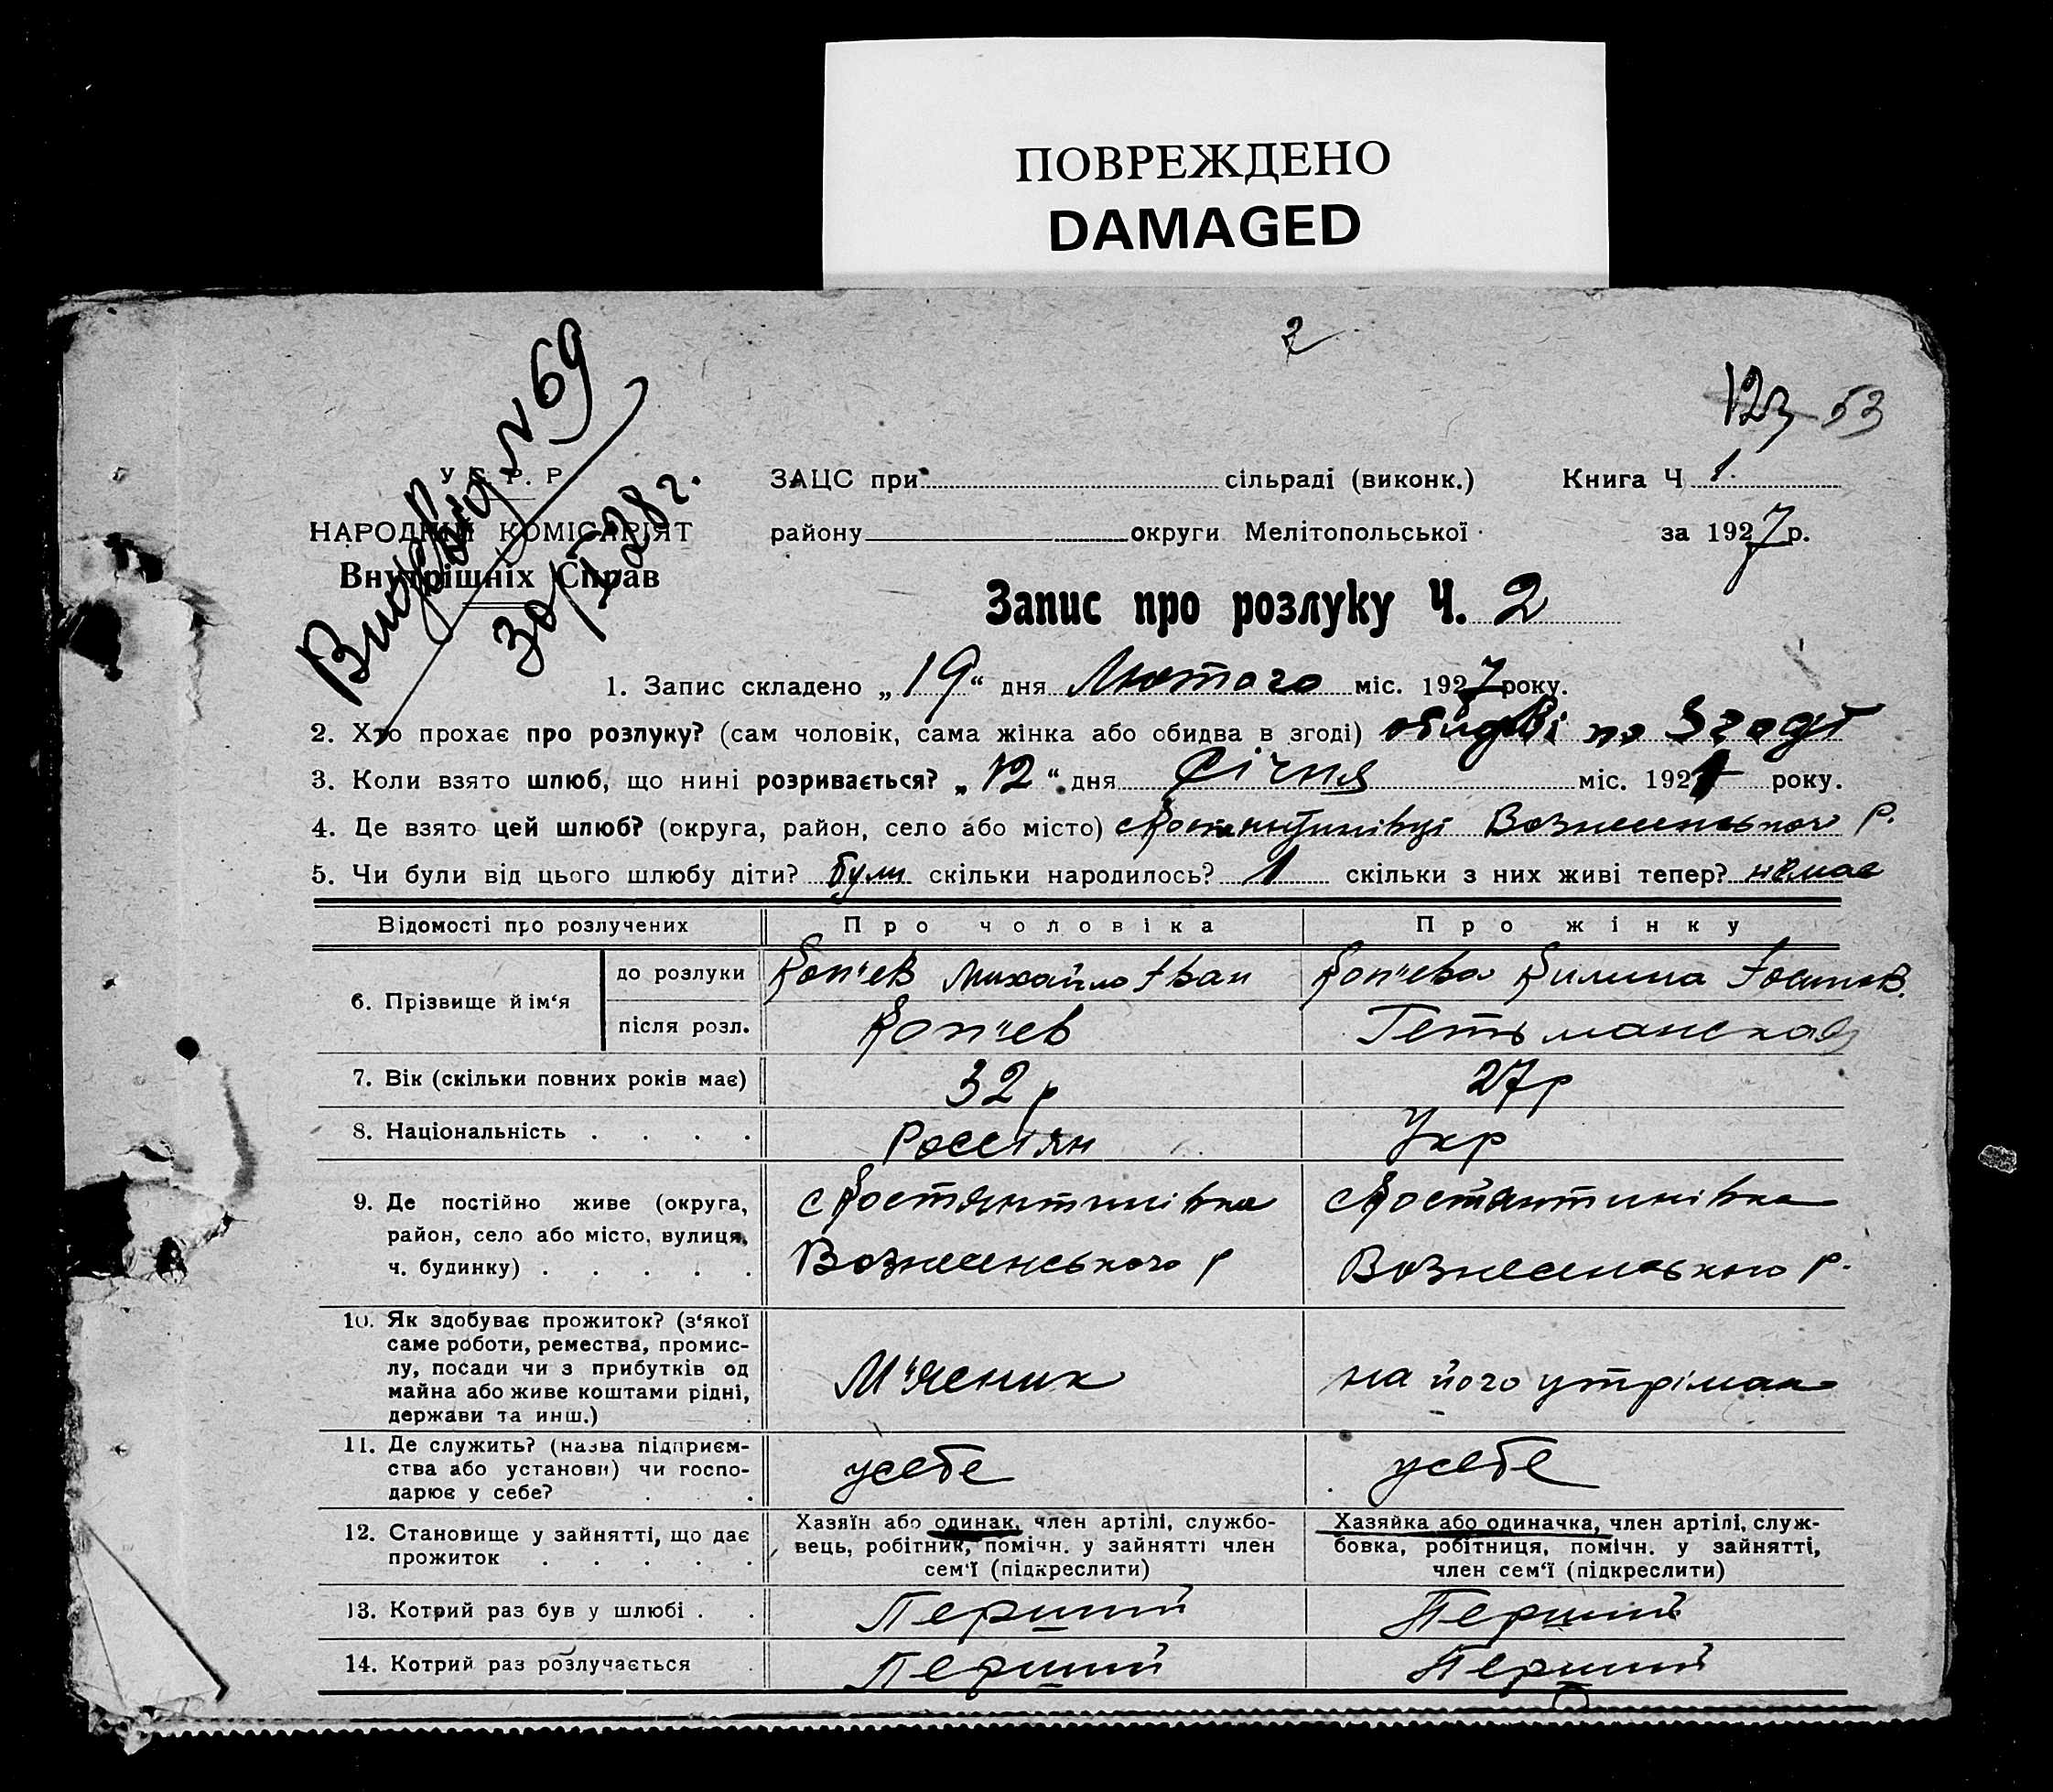 ПОВРЕЖДЕНО
DAMAGED
2
123 53
№ 69
У.С.Р.Р.
НАРОДНИЙ КОМІСАРІЯТ
Внутрішніх Справ
28 г.
ЗАЦС при сільраді (виконк.) Книга Ч 1.
району округи Мелітопольської за 1927 р.
Запис про розлуку Ч. 2
1. Запис складено „19“ дня Лютого міс. 1927 року.
2. Хто прохає про розлуку? (сам чоловік, сама жінка або обидва в згоді) обидві по згоді
3. Коли взято шлюб, що нині розривається? „12“ дня Січня міс. 1921 року.
4. Де взято цей шлюб? (округа, район, село або місто) с Костянтинівці Вознесенського р.
5. Чи були від цього шлюбу діти? були скільки народилось? 1 скільки з них живі тепер? немає
Відомості про розлучених Про чоловіка Про жінку
6. Прізвище й ім‘я до розлуки Коп'єв Михайло Іван Коп'єва Килина Йосипов.
після розл. Коп'єв Гетьманська
7. Вік (скільки повних років має) 32 р 27 р
8. Національність . . . . Россіян Укр
9. Де постійно живе (округа, с Костянтинівка с Костянтинівка
район, село або місто, вулиця,
ч. будинку) . . . . . Вознесенського р Вознесенського р.
10. Як здобуває прожиток? (з‘якої
саме роботи, ремества, промис-
лу, посади чи з прибутків од
майна або живе коштами рідні,
держави та инш.) М'ясник на його утриман
11. Де служить? (назва підприєм-
ства або установи) чи госпо-
дарює у себе? . . усебе усебе
12. Становище у зайнятті, що дає
прожиток . . . . .
Хазяїн або одинак, член артілі, службо-
вець, робітник, помічн. у зайнятті член
сем‘ї (підкреслити)
Хазяйка або одиначка, член артілі, служ-
бовка, робітниця, помічн. у зайнятті,
член сем‘ї (підкреслити)
13. Котрий раз був у шлюбі . . Перший Перший
14. Котрий раз розлучається . Перший Перший